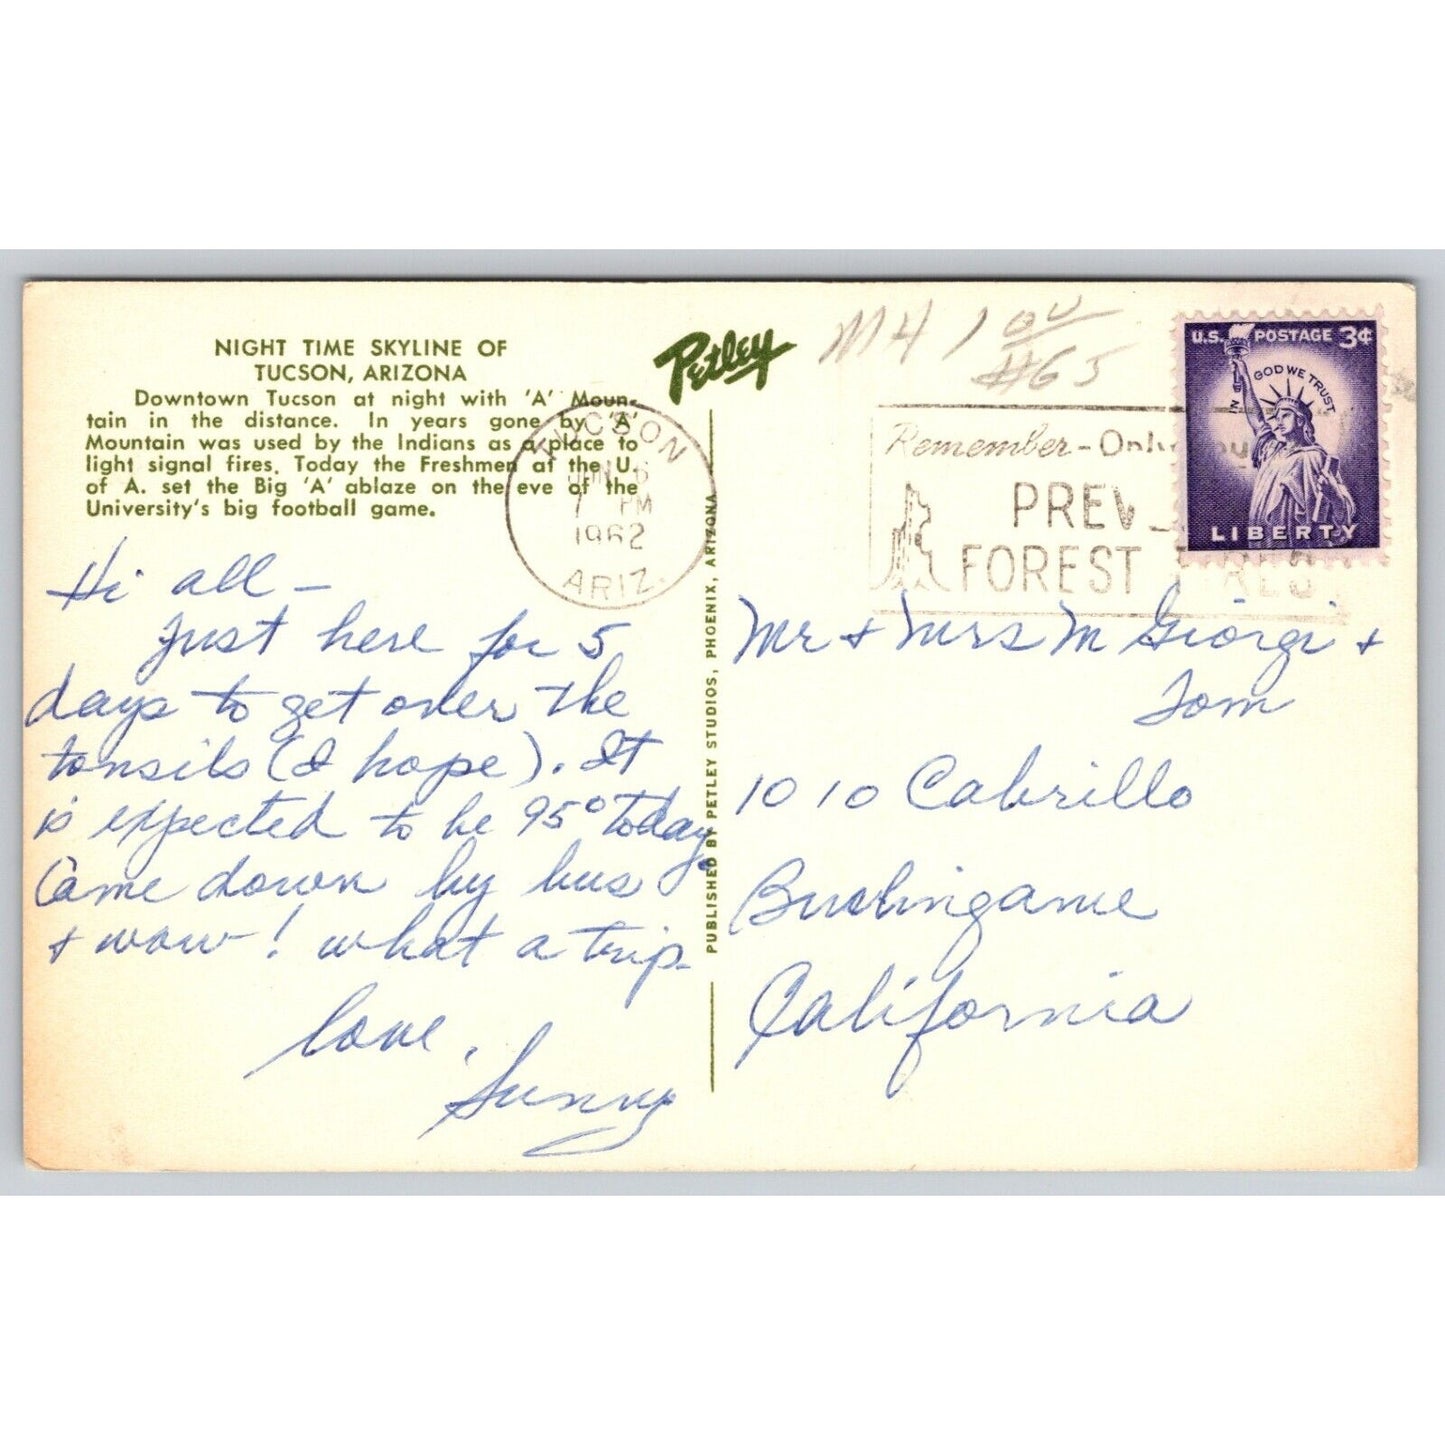 NIGHT TIME SKYLINE OF
TUCSON, ARIZONA
Downtown Tucson at night with 'A' Moun-
tain in the distance. In years gone by 'A'
Mountain was used by the Indians as a place to
light signal fires. Today the Freshmen at the U.
of A. set the Big 'A' ablaze on the eve of the
University's big football game.
Hi all –
Just here for 5
days to get over the
tonsils (I hope). It
is expected to be 95° today.
Came down by bus
+ wow! what a trip.
Love,
Sunny
Petley
PUBLISHED BY PETLEY STUDIOS, PHOENIX, ARIZONA
TUCSON
6
7 PM
1962
ARIZ.
M4 1 00
#65
Remember-Only
PREV
FOREST
U.S. POSTAGE 3¢
IN GOD WE TRUST
LIBERTY
Mr + Mrs M Giorgi +
Tom
1010 Cabrillo
Burlingame
California